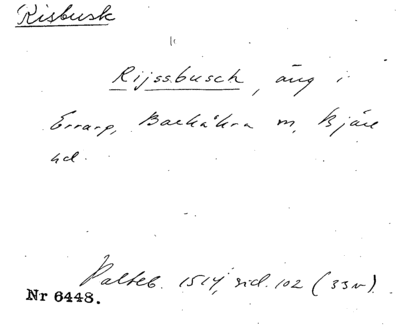 Risbusk
Rijssbusch, äng i
Errarp, Backåkra m, Bjäre
hd.
Palteb. 1514, sid. 102 (33v)
Nr 6448.